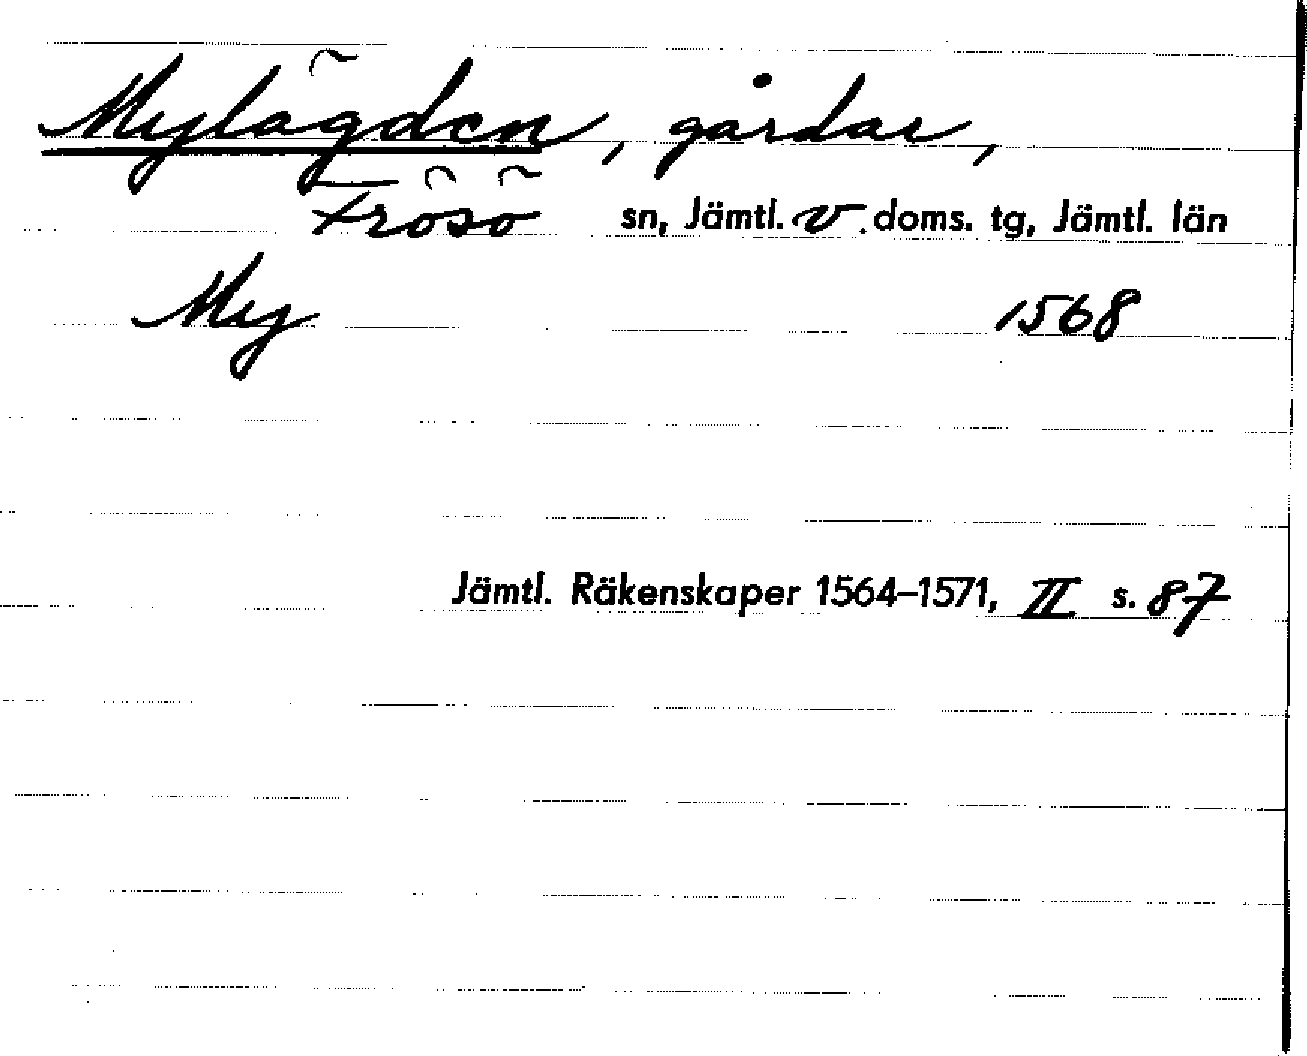 Mylägden, gårdar,
Frösö sn, Jämtl. v. doms. tg, Jämtl. län
My 1568
Jämtl. Räkenskaper 1564–1571, II s. 87